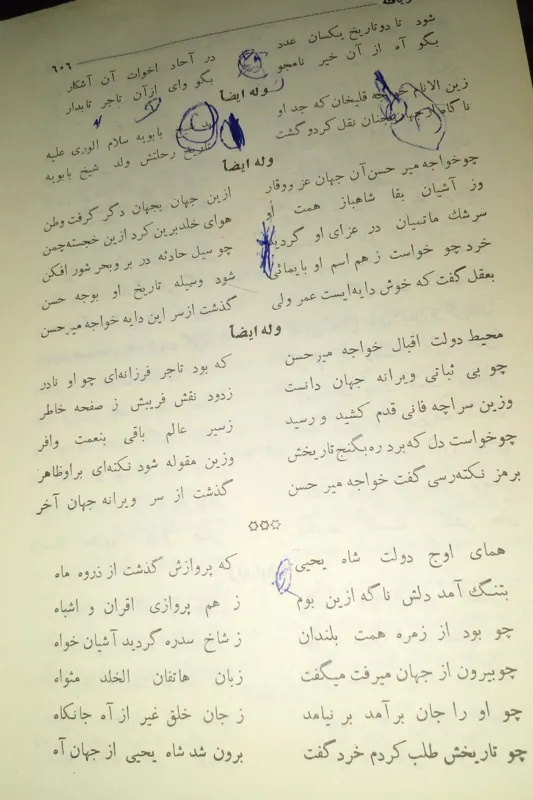 ۶۰۶
شود تا دو تاریخ یکسان عدد در آحاد اخوات آن آشکار
بگو آه از آن خیر نامجو بگو وای ازآن تاجر تابدار
وله ایضاً
زین الانام قلیخان که جد او شیخ بابویه سلام الوری علیه
ناگاه نقل کردو گشت تاریخ رحلتش ولد شیخ بابویه
وله ایضاً
چوخواجه میر حسن‌آن جهان عز ووقار ازین جهان بجهان دگر گرفت وطن
وز آشیان بقا شاهباز همت او هوای خلدبرین کرد ازین خجسته‌چمن
سرشك ماتمیان در عزای او گردید چو سیل حادثه در بر وبحر شور افکن
خرد چو خواست ز هم اسم او بایمائی شود وسیله تاریخ او بوجه حسن
بعقل گفت که خوش دایه‌ایست عمر ولی گذشت ازسر این دایه خواجه میرحسن
وله ایضاً
محیط دولت اقبال خواجه میرحسن که بود تاجر فرزانه‌ای چو او نادر
چو بی ثباتی ویرانه جهان دانست زدود نقش فریبش ز صفحه خاطر
وزین سراچه فانی قدم کشید و رسید زسیر عالم باقی بنعمت وافر
چوخواست دل که‌برد ره‌بگنج‌تاریخش وزین مقوله شود نکته‌ای براوظاهر
برمز نکته‌رسی گفت خواجه میر حسن گذشت از سر ویرانه جهان آخر
همای اوج دولت شاه یحیی که پروازش گذشت از ذروه ماه
بتنگ آمد دلش ناگه ازین بوم ز هم پروازی اقران و اشباه
چو بود از زمره همت بلندان ز شاخ سدره گردید آشیان خواه
چوبیرون از جهان میرفت میگفت زبان هاتفان الخلد مثواه
چو او را جان برآمد بر نیامد ز جان خلق غیر از آه جانکاه
چو تاریخش طلب کردم خرد گفت برون شد شاه یحیی از جهان آه